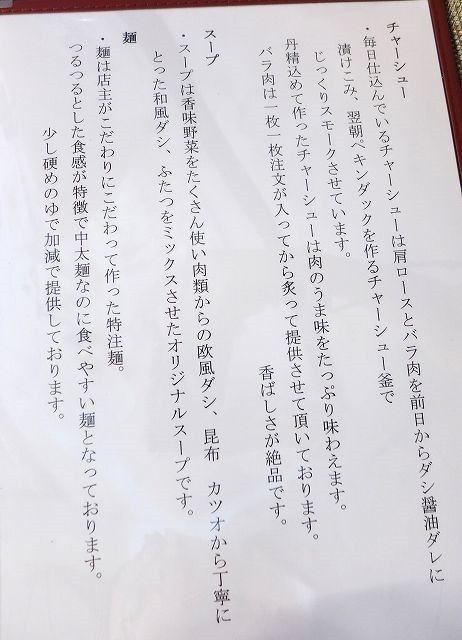 チャーシュー
・毎日仕込んでいるチャーシューは肩ロースとバラ肉を前日からダシ醤油ダレに
漬けこみ、翌朝ペキンダックを作るチャーシュー釜で
じっくりスモークさせています。
丹精込めて作ったチャーシューは肉のうま味をたっぷり味わえます。
バラ肉は一枚一枚注文が入ってから炙って提供させて頂いております。
香ばしさが絶品です。
スープ
・スープは香味野菜をたくさん使い肉類からの欧風ダシ、昆布 カツオから丁寧に
とった和風ダシ、ふたつをミックスさせたオリジナルスープです。
麺
・麺は店主がこだわりにこだわって作った特注麺。
つるつるとした食感が特徴で中太麺なのに食べやすい麺となっております。
少し硬めのゆで加減で提供しております。